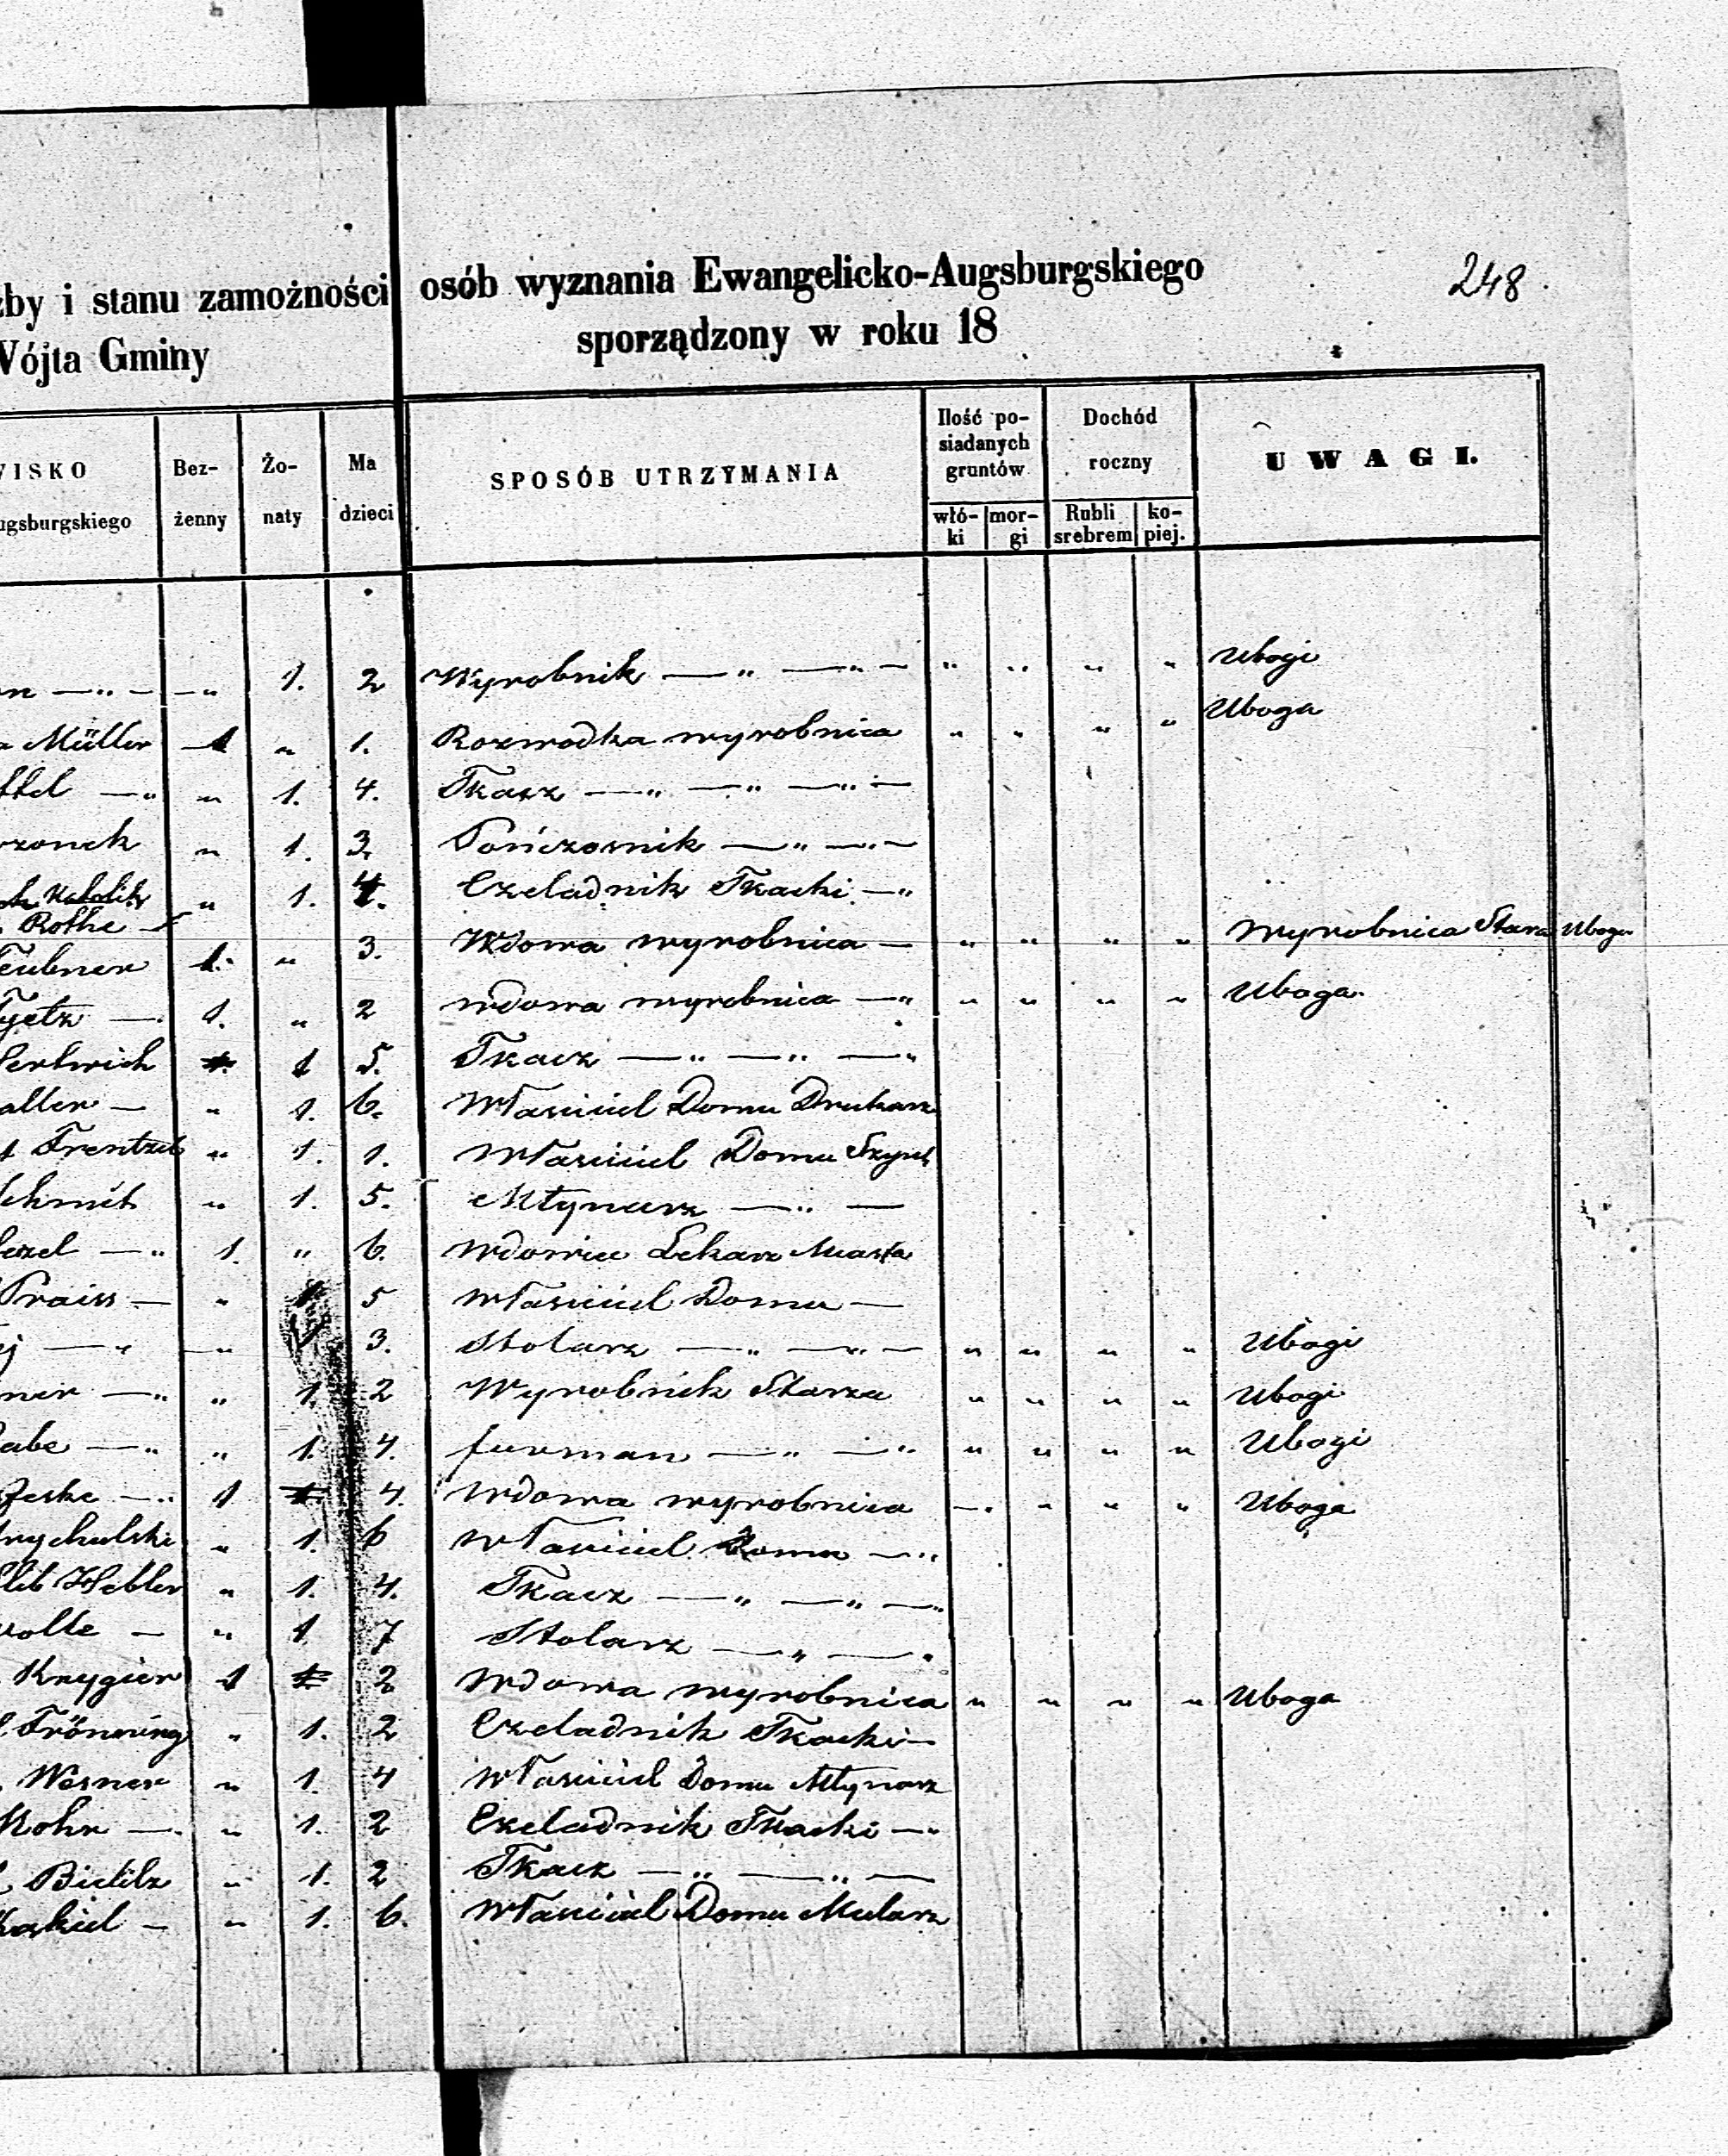 żby i stanu zamożności osób wyznania Ewangelicko-Augsburgskiego 248
Wójta Gminy sporządzony w roku 18
WISKO
ugsburgskiego
Bez-
żenny
Żo-
naty
Ma
dzieci
SPOSÓB UTRZYMANIA
Ilość po-
siadanych
gruntów
włó-
ki
mor-
gi
Dochód
roczny
Rubli
srebrem
ko-
piej.
UWAGI.
n — „ — — „ 1. 2 Wyrobnik — „ — „ — „ „ „ „ Ubogi
a Müller 1 „ 1. Rozwodka wyrobnica „ „ „ „ Uboga
ttel — „ „ 1. 4. Tkacz — „ — „ — „ —
rzonek „ 1. 3. Pończosnik — „ — „ —
Katolik „ 1. 4. Czeladnik Tkacki — „
Rothe —
Teubner 1. „ 3. Wdowa wyrobnica — „ „ „ „ wyrobnica Stara Uboga
Tyetz — 1. „ 2 wdowa wyrobnica — „ „ „ „ „ Uboga
Gerbrich 1 5. Tkacz — „ — „ — „
alter — „ 1. 6. Własciciel Domu Drukarz
t Frentzel „ 1. 1. Własciciel Domu
Schmit „ 1. 5. Młynarz — „ —
ezel — „ 1. „ 6. Wdowiec Lekarz Miasta
Praiss — „ 1 5 Własciciel Domu —
j — „ — „ 1 3. Stolarz — „ — „ — „ „ „ „ Ubogi
ner — „ „ 1. 2 Wyrobnik Starzec „ „ „ „ Ubogi
abe — „ „ 1. 4. furman — „ — „ „ „ „ „ Ubogi
Jeske — „ 1 4. Wdowa wyrobnica — „ „ „ „ Uboga
rychulski „ 1. 6 Własciciel Domu — „
lieb Hebler „ 1. 4. Tkacz — „ — „ — „
olte — „ 1. 7 Stolarz — „ —
Krygier 1 2 Wdowa wyrobnica „ „ „ „ Uboga
Frönning „ 1. 2 Czeladnik Tkacki —
Wesner „ 1. 4 Własciciel Domu Młynarz
Kohn — „ 1. 2 Czeladnik Tkacki — „
Bielitz „ 1. 2 Tkacz — „ — „ —
kiel — „ 1. 6. Własciciel Domu Mularz